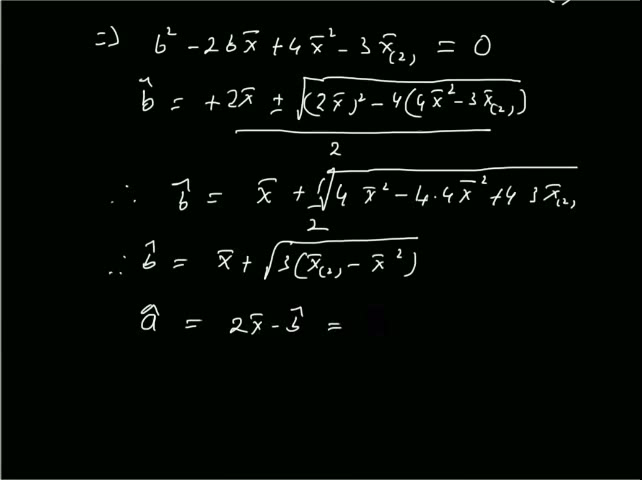 ⇒ b² - 2b x̄ + 4x̄² - 3x̄₍₂₎ = 0
b̂ = +2x̄ ± √((2x̄)² - 4(4x̄² - 3x̄₍₂₎)) / 2
∴ b̂ = x̄ + ½√(4 x̄² - 4·4x̄² + 4 3x̄₍₂₎)
∴ b̂ = x̄ + √(3(x̄₍₂₎ - x̄²))
â = 2x̄ - b̂ =